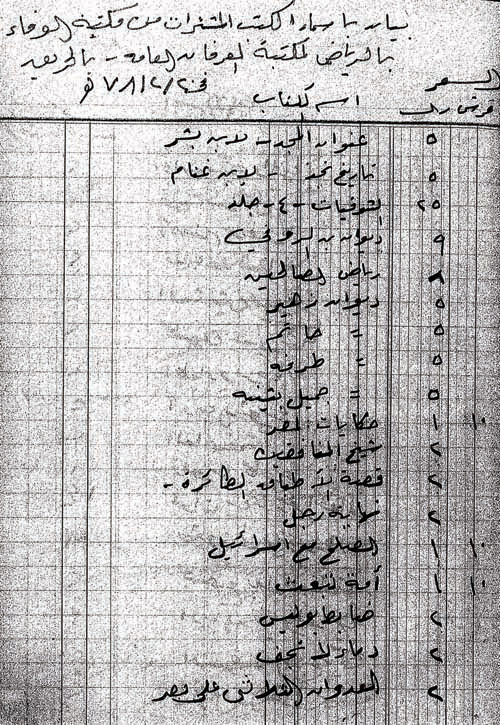 بيان باسماء الكتب المشتراه من مكتبة الوفاء
بالرياض لمكتبة العرفان العامه - بالحريق
في ٢/٢/٧٨ هـ
السعر
قرش ريال اسم الكتاب
٥ عنوان المجد - لابن بشر
٥ تاريخ نجد - لابن غنام
٢٥ الشوقيات - ٤ - جلد
٩ ديوان بن الرومي
٨ رياض الصالحين
٥ ديوان زهير
٥ = حاتم
٥ = طرفه
٥ = جميل بثينه
١٠ ١ حكايات
٢ شيخ المنافقين
٢ قصة الأطباق الطائرة -
٢ نهاية رجل
١٠ ١ الصلح مع اسرائيل
١٠ ١ أمة تبعث
٢ ضابط بوليس
٢ دماء لا تجف
٢ العدوان الثلاثي على مصر